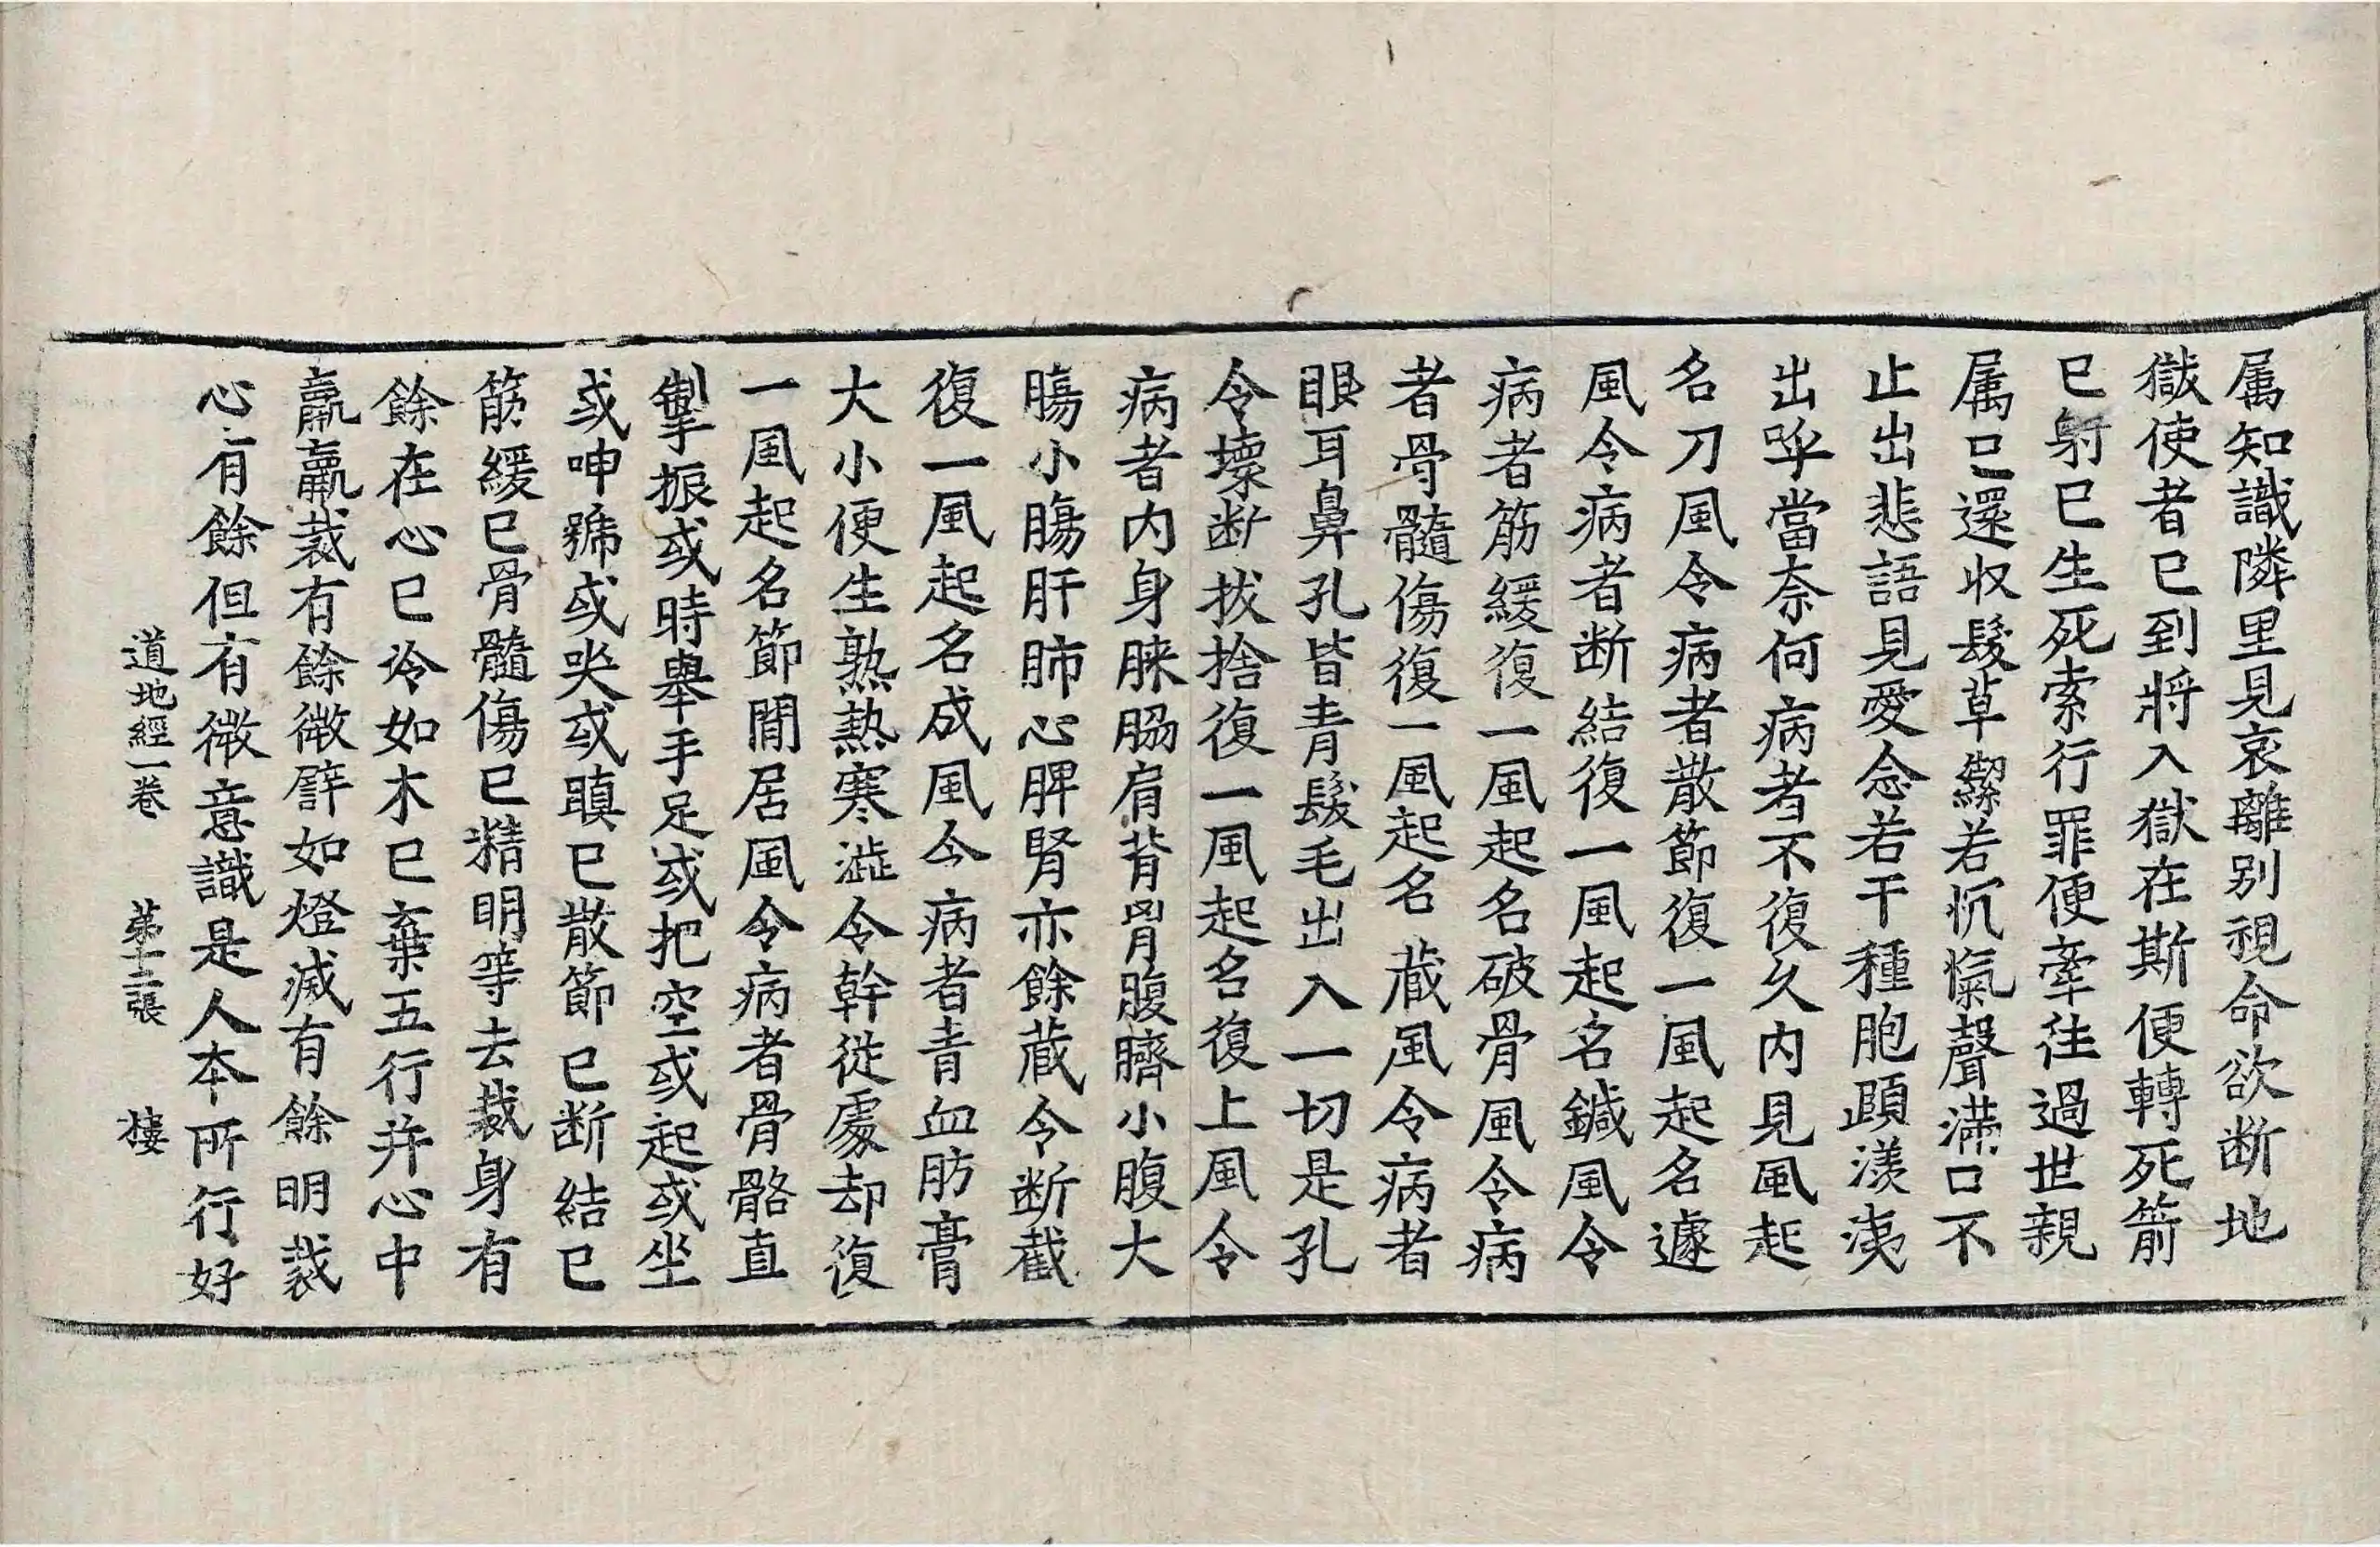 属知識隣里見哀離別視命欲断地
獄使者已到將入獄在斯便轉死箭
已射已生死索行罪便牽往過世親
属已還収髮草繫若沉愾聲滿口不
止出悲語見愛念若干種胞頤漾洟
出呼當奈何病者不復久內見風起
名刀風令病者散節復一風起名遽
風令病者断結復一風起名鍼風令
病者筋緩復一風起名破骨風令病
者骨髓傷復一風起名藏風令病者
眼耳鼻孔皆青髮毛出入一切是孔
令壞断拔捨復一風起名復上風令
病者內身膝脇肩背胷腹臍小腹大
腸小腸肝肺心脾腎亦餘藏令断截
復一風起名成風令病者青血肪膏
大小便生熟熱寒澁令幹從處却復
一風起名節間居風令病者骨骼直
掣振或時舉手足或把空或起或坐
或呻號或哭或瞋已散節已断結已
筋緩已骨髓傷已精明等去裁身有
餘在心已冷如木已棄五行并心中
羸羸裁有餘微譬如燈滅有餘明裁
心有餘但有微意識是人本所行好
道地經一卷 第十二張 樓